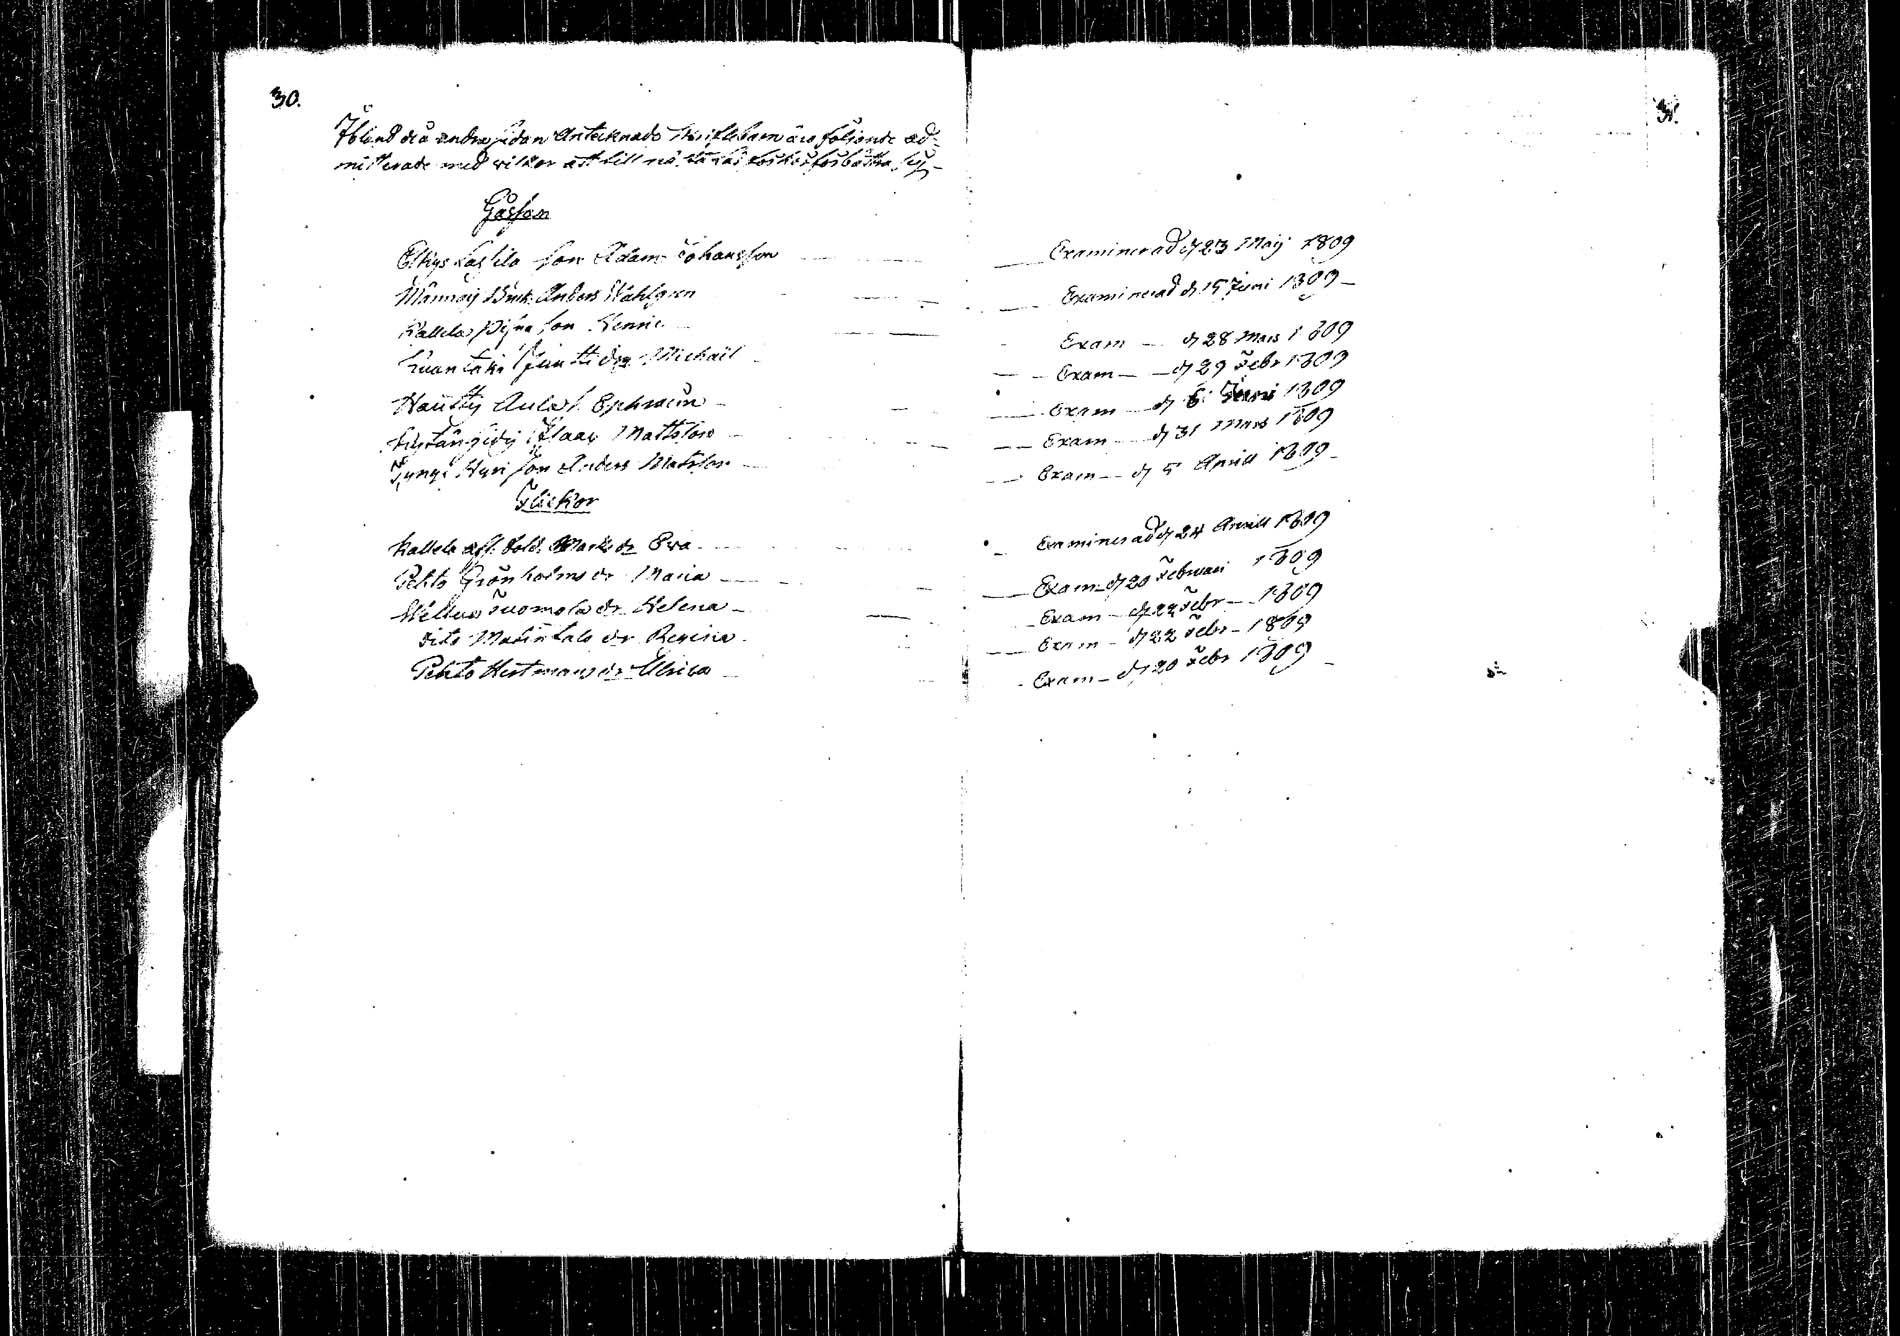 30.
Ibland de å andra sidan Antecknade Skriftebarn äro följande ad-
mitterade med vilkor att till nästa Läsförhör förbättra sig
Gåssar
Elkys Lassila son Adam Johansson
Männäis Anders Wahlgren
Kallela Pijpa son Henric
Luantaka Juntti dräng Michaël
Hautty Aula s. Ephraim
Isaac Mattsson
Anders Matsson
Flickor
Kallela afsk. Sold. Marks dr Eva
Pehto Grönholms dr Maria
Tuomola dr Helena
dito Matintalo dr Regina
Pehto Hertmans dr Ulrica
31.
Examinerad d 23 Maij 1809
Examinerad d 15 Juni 1809
Exam d 28 Mars 1809
Exam d 29 Febr 1809
Exam d 6 Juni 1809
Exam d 31 Mars 1809
Exam d 5 Aprill 1809
Examinerad d 24 Aprill 1809
Exam d 20 Februari 1809
Exam d 22 Febr 1809
Exam d 22 Febr 1809
Exam d 20 Febr 1809